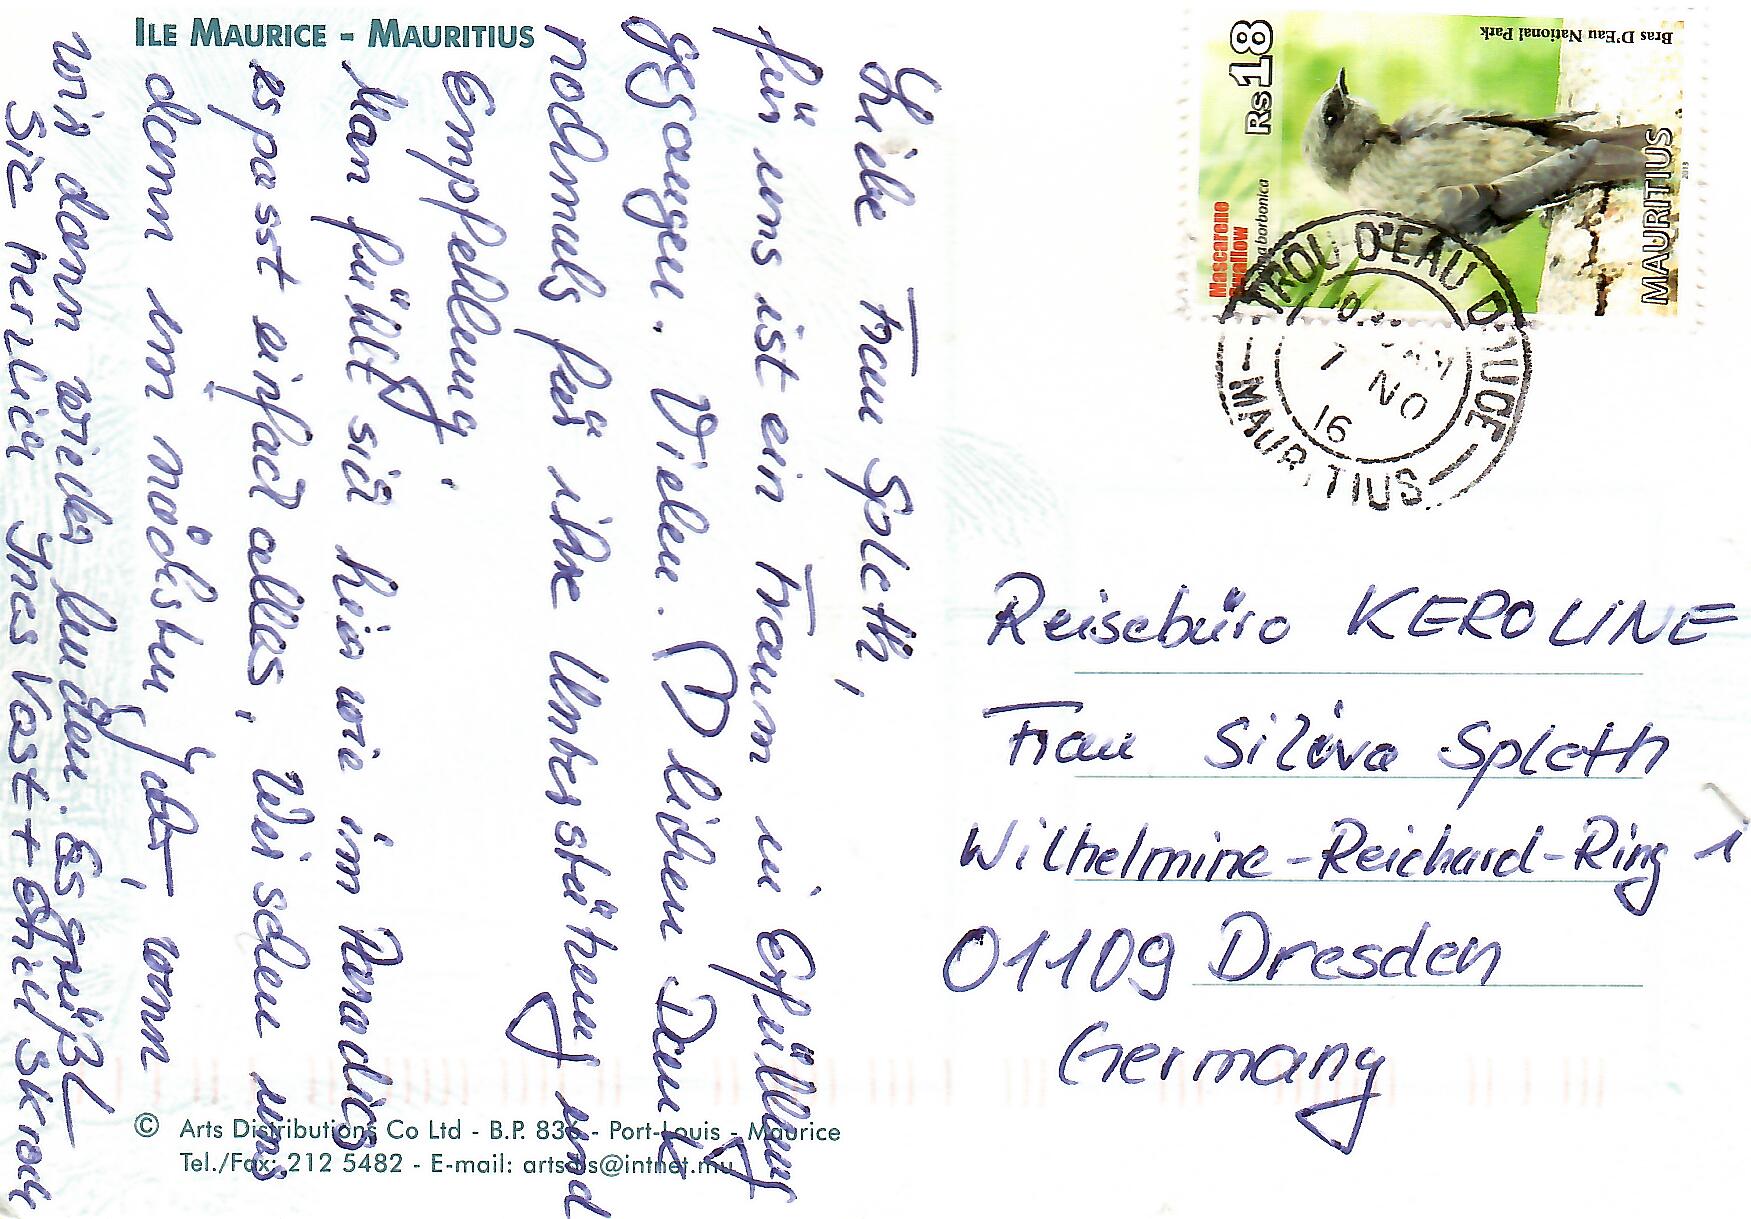 ILE MAURICE - MAURITIUS
Liebe Frau Spleth,
für uns ist ein Traum in Erfüllung
gegangen. Vielen, lieben Dank
nochmals für ihre Unterstützung und
Empfehlung.
Man fühlt sich hier wie im Paradies
es passt einfach alles. Wir sehen uns
dann im nächsten Jahr, wenn
wir dann wieder landen. Es grüßt
Sie herzlich Ines Vast +
Rs 18
Mascarene
Swallow
borbonica
Bras D'Eau National Park
MAURITIUS
2013
TROU D'EAU DOUCE
7 NO
16
MAURITIUS
Reisebüro KEROLINE
Frau Silōva Spleth
Wilhelmine-Reichard-Ring 1
01109 Dresden
Germany
© Arts Distributions Co Ltd - B.P. - Port-Louis - Maurice
Tel./Fax: 212 5482 - E-mail: artsdis@intnet.mu